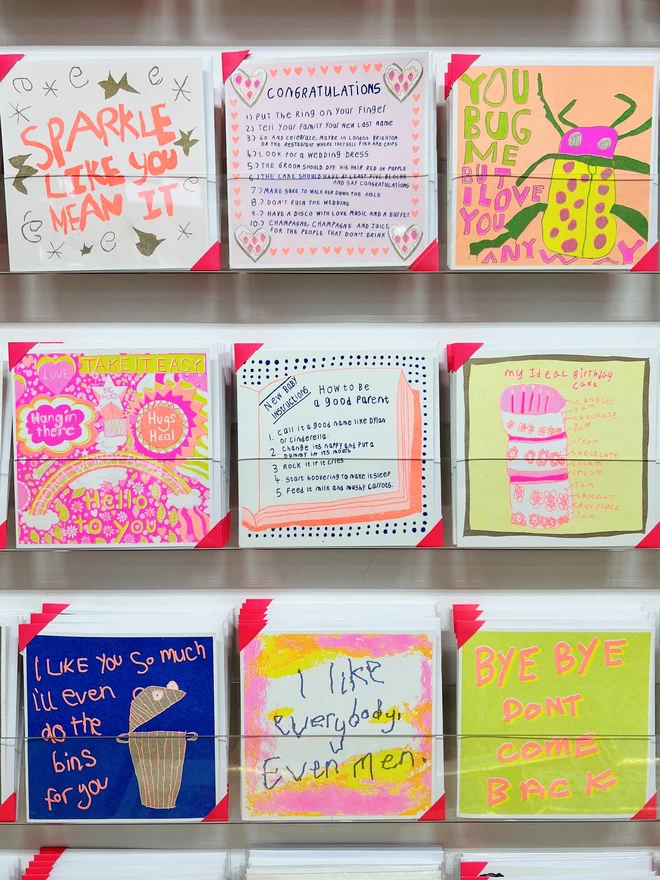 SPARKLE
LIKE YOU
MEAN IT
CONGRATULATIONS
1) PUT THE RING ON YOUR FINGER
2) TELL YOUR FAMILY YOUR NEW LAST NAME
3) GO AND CELEBRATE, MAYBE IN LONDON BRIGHTON
OR THE RESTAURANT WHERE THEY SELL FISH AND CHIPS
4) LOOK FOR A WEDDING DRESS
5) THE GROOM SHOULD DYE HIS HAIR RED OR PURPLE
6) THE CAKE SHOULD HAVE AT LEAST FIVE BLOCKS
AND SAY CONGRATULATIONS
7) MAKE SURE TO WALK HER DOWN THE AISLE
8) DON'T RUIN THE WEDDING
9) HAVE A DISCO WITH LOVE MUSIC AND A BUFFET
10) CHAMPAGNE, CHAMPAGNE AND JUICE
FOR THE PEOPLE THAT DON'T DRINK
YOU
BUG
ME
BUT
I LOVE
YOU
ANYWAY
LOVE
TAKE IT EASY
BIG
HUGS
Hangin
there
Hugs
Heal
Hello
to you
New Baby
Instructions
How to Be
a good Parent
1. Call it a good name like Dylan
or Cinderella.
2. Change its nappy and put a
Dummy in its mouth
3 Rock it if it cries
4. Start hoovering to make it sleep
5. Feed it milk and mushy carrots.
my Ideal Birthday
Cake
CANDLES
JAM
CHOCOLATE
JAM
CREAM
CHOCOLATE
cream
cream
Jam
CHOCOLATE
CHOCOLATE
Jam
I LIKE YOU SO much
i'll even
do the
bins
for you
i like
everybody,
Even men.
BYE BYE
DONT
COME
BACK